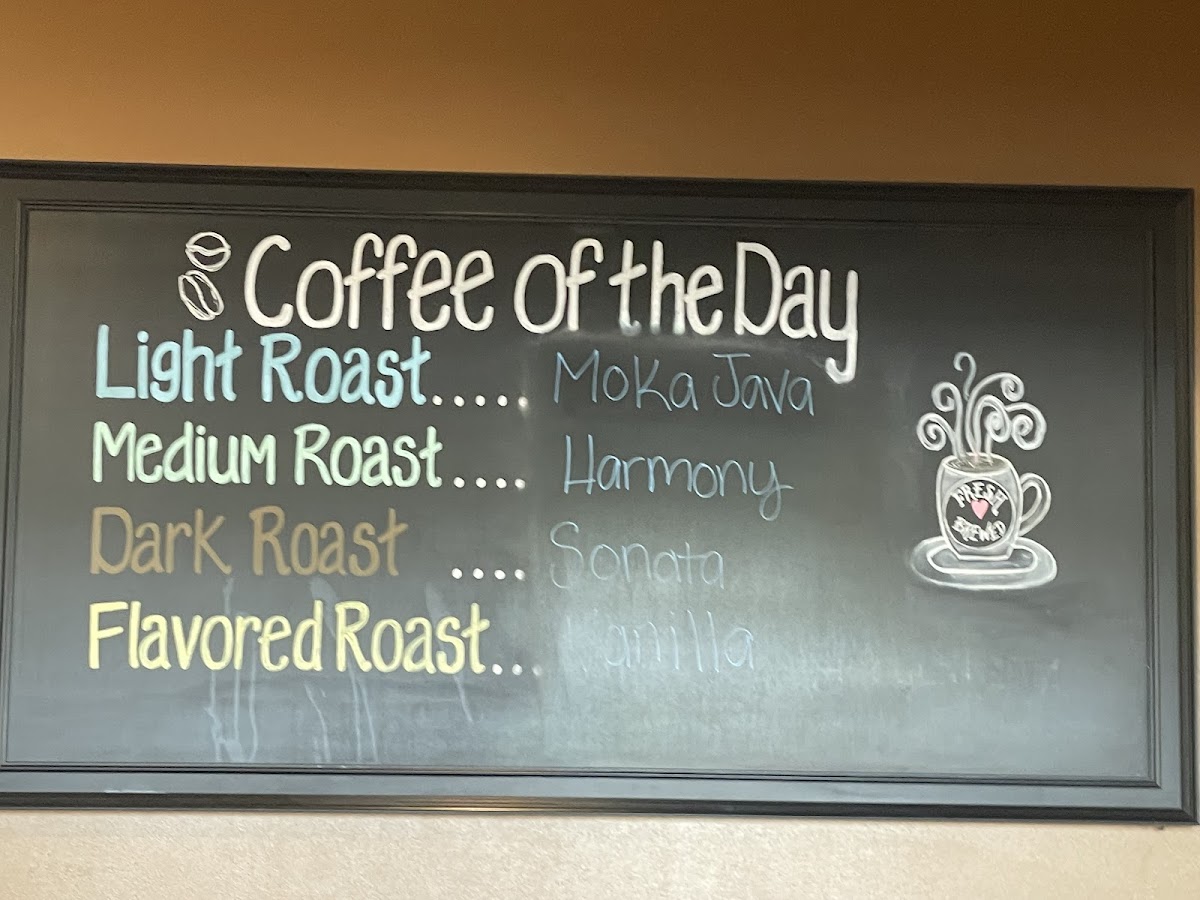 Coffee of the Day
Light Roast..... Moka Java
Medium Roast.... Harmony
Dark Roast .... Sonata
Flavored Roast... Vanilla
FRESH
BREWED